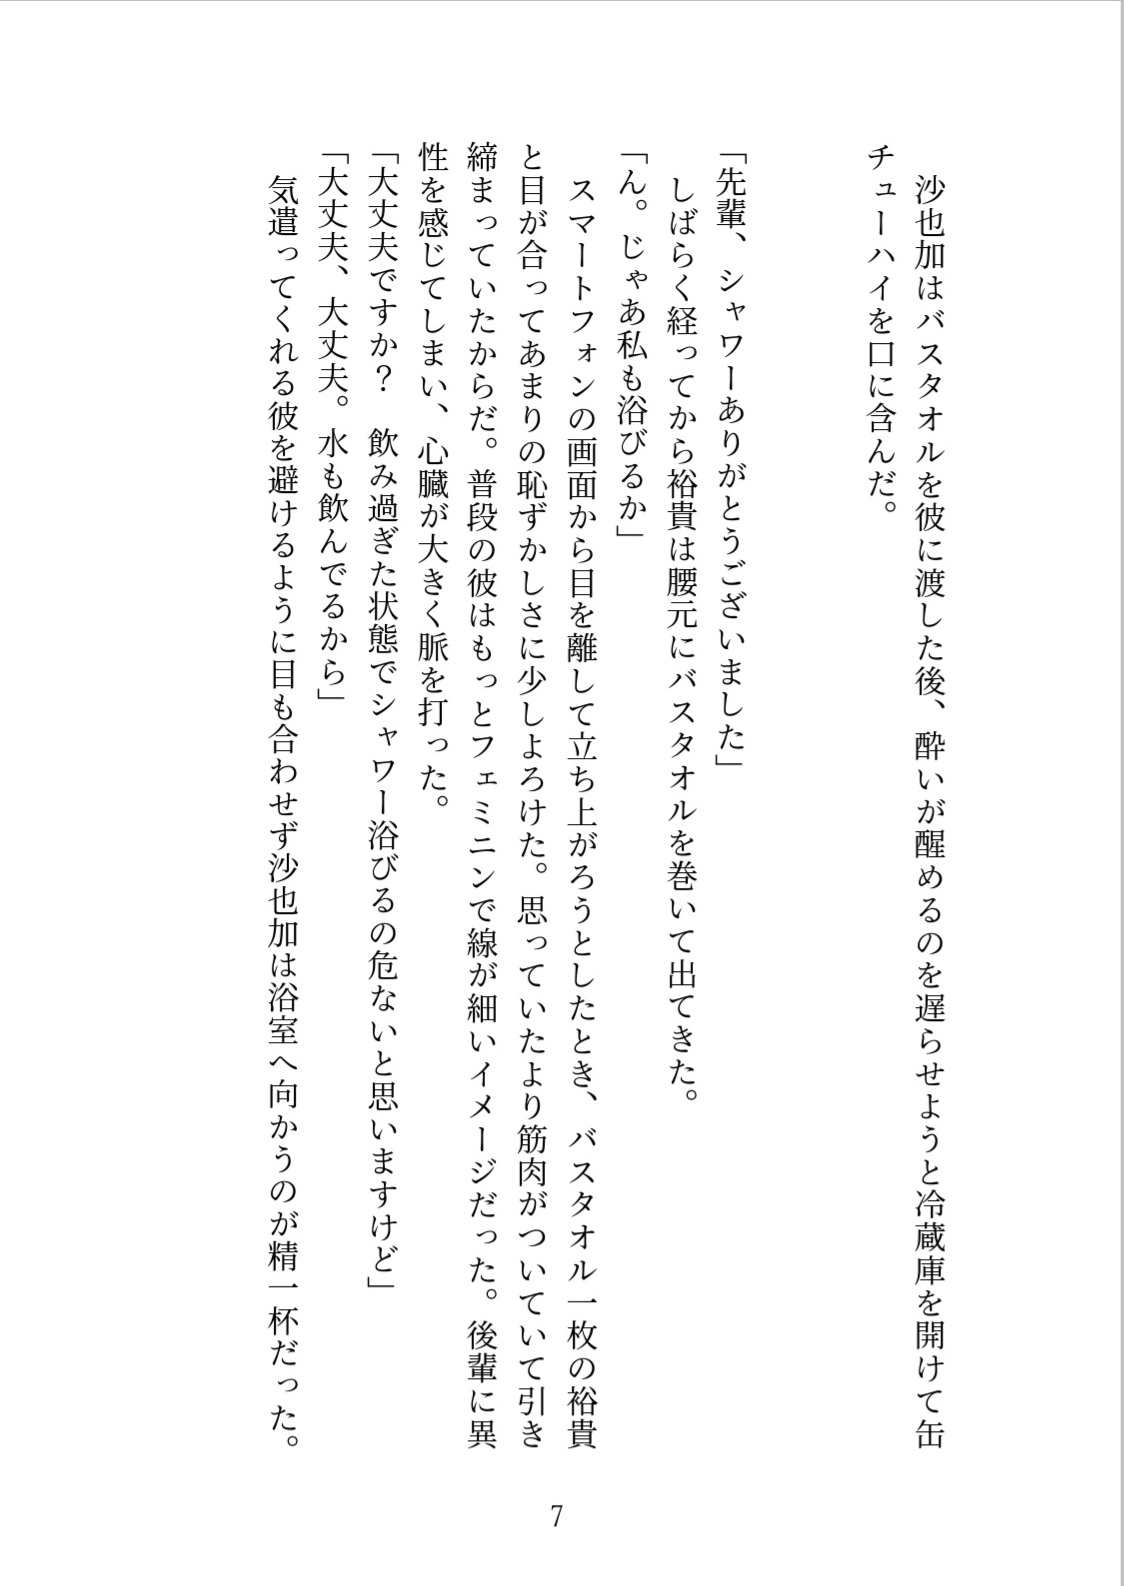 沙也加はバスタオルを彼に渡した後、酔いが醒めるのを遅らせようと冷蔵庫を開けて缶
チューハイを口に含んだ。
「先輩、シャワーありがとうございました」
　しばらく経ってから裕貴は腰元にバスタオルを巻いて出てきた。
「ん。じゃあ私も浴びるか」
　スマートフォンの画面から目を離して立ち上がろうとしたとき、バスタオル一枚の裕貴
と目が合ってあまりの恥ずかしさに少しよろけた。思っていたより筋肉がついていて引き
締まっていたからだ。普段の彼はもっとフェミニンで線が細いイメージだった。後輩に異
性を感じてしまい、心臓が大きく脈を打った。
「大丈夫ですか？　飲み過ぎた状態でシャワー浴びるの危ないと思いますけど」
「大丈夫、大丈夫。水も飲んでるから」
　気遣ってくれる彼を避けるように目も合わせず沙也加は浴室へ向かうのが精一杯だった。
7